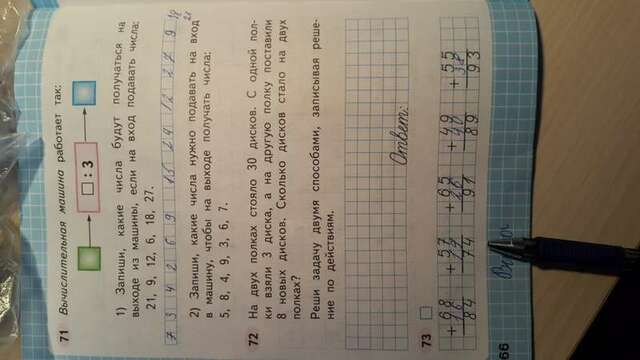 71 Вычислительная машина работает так:
□ : 3
1) Запиши, какие числа будут получаться на
выходе из машины, если на вход подавать числа:
21, 9, 12, 6, 18, 27.
7 3 4 2 6 9 15 24 12 27 9 18
21
2) Запиши, какие числа нужно подавать на вход
в машину, чтобы на выходе получать числа:
5, 8, 4, 9, 3, 6, 7.
72 На двух полках стояло 30 дисков. С одной пол-
ки взяли 3 диска, а на другую полку поставили
8 новых дисков. Сколько дисков стало на двух
полках?
Реши задачу двумя способами, записывая реше-
ние по действиям.
Ответ:
73
+ 68 + 57 + 65 + 49 + 55
16 17 26 40 38
84 74 91 89 93
66